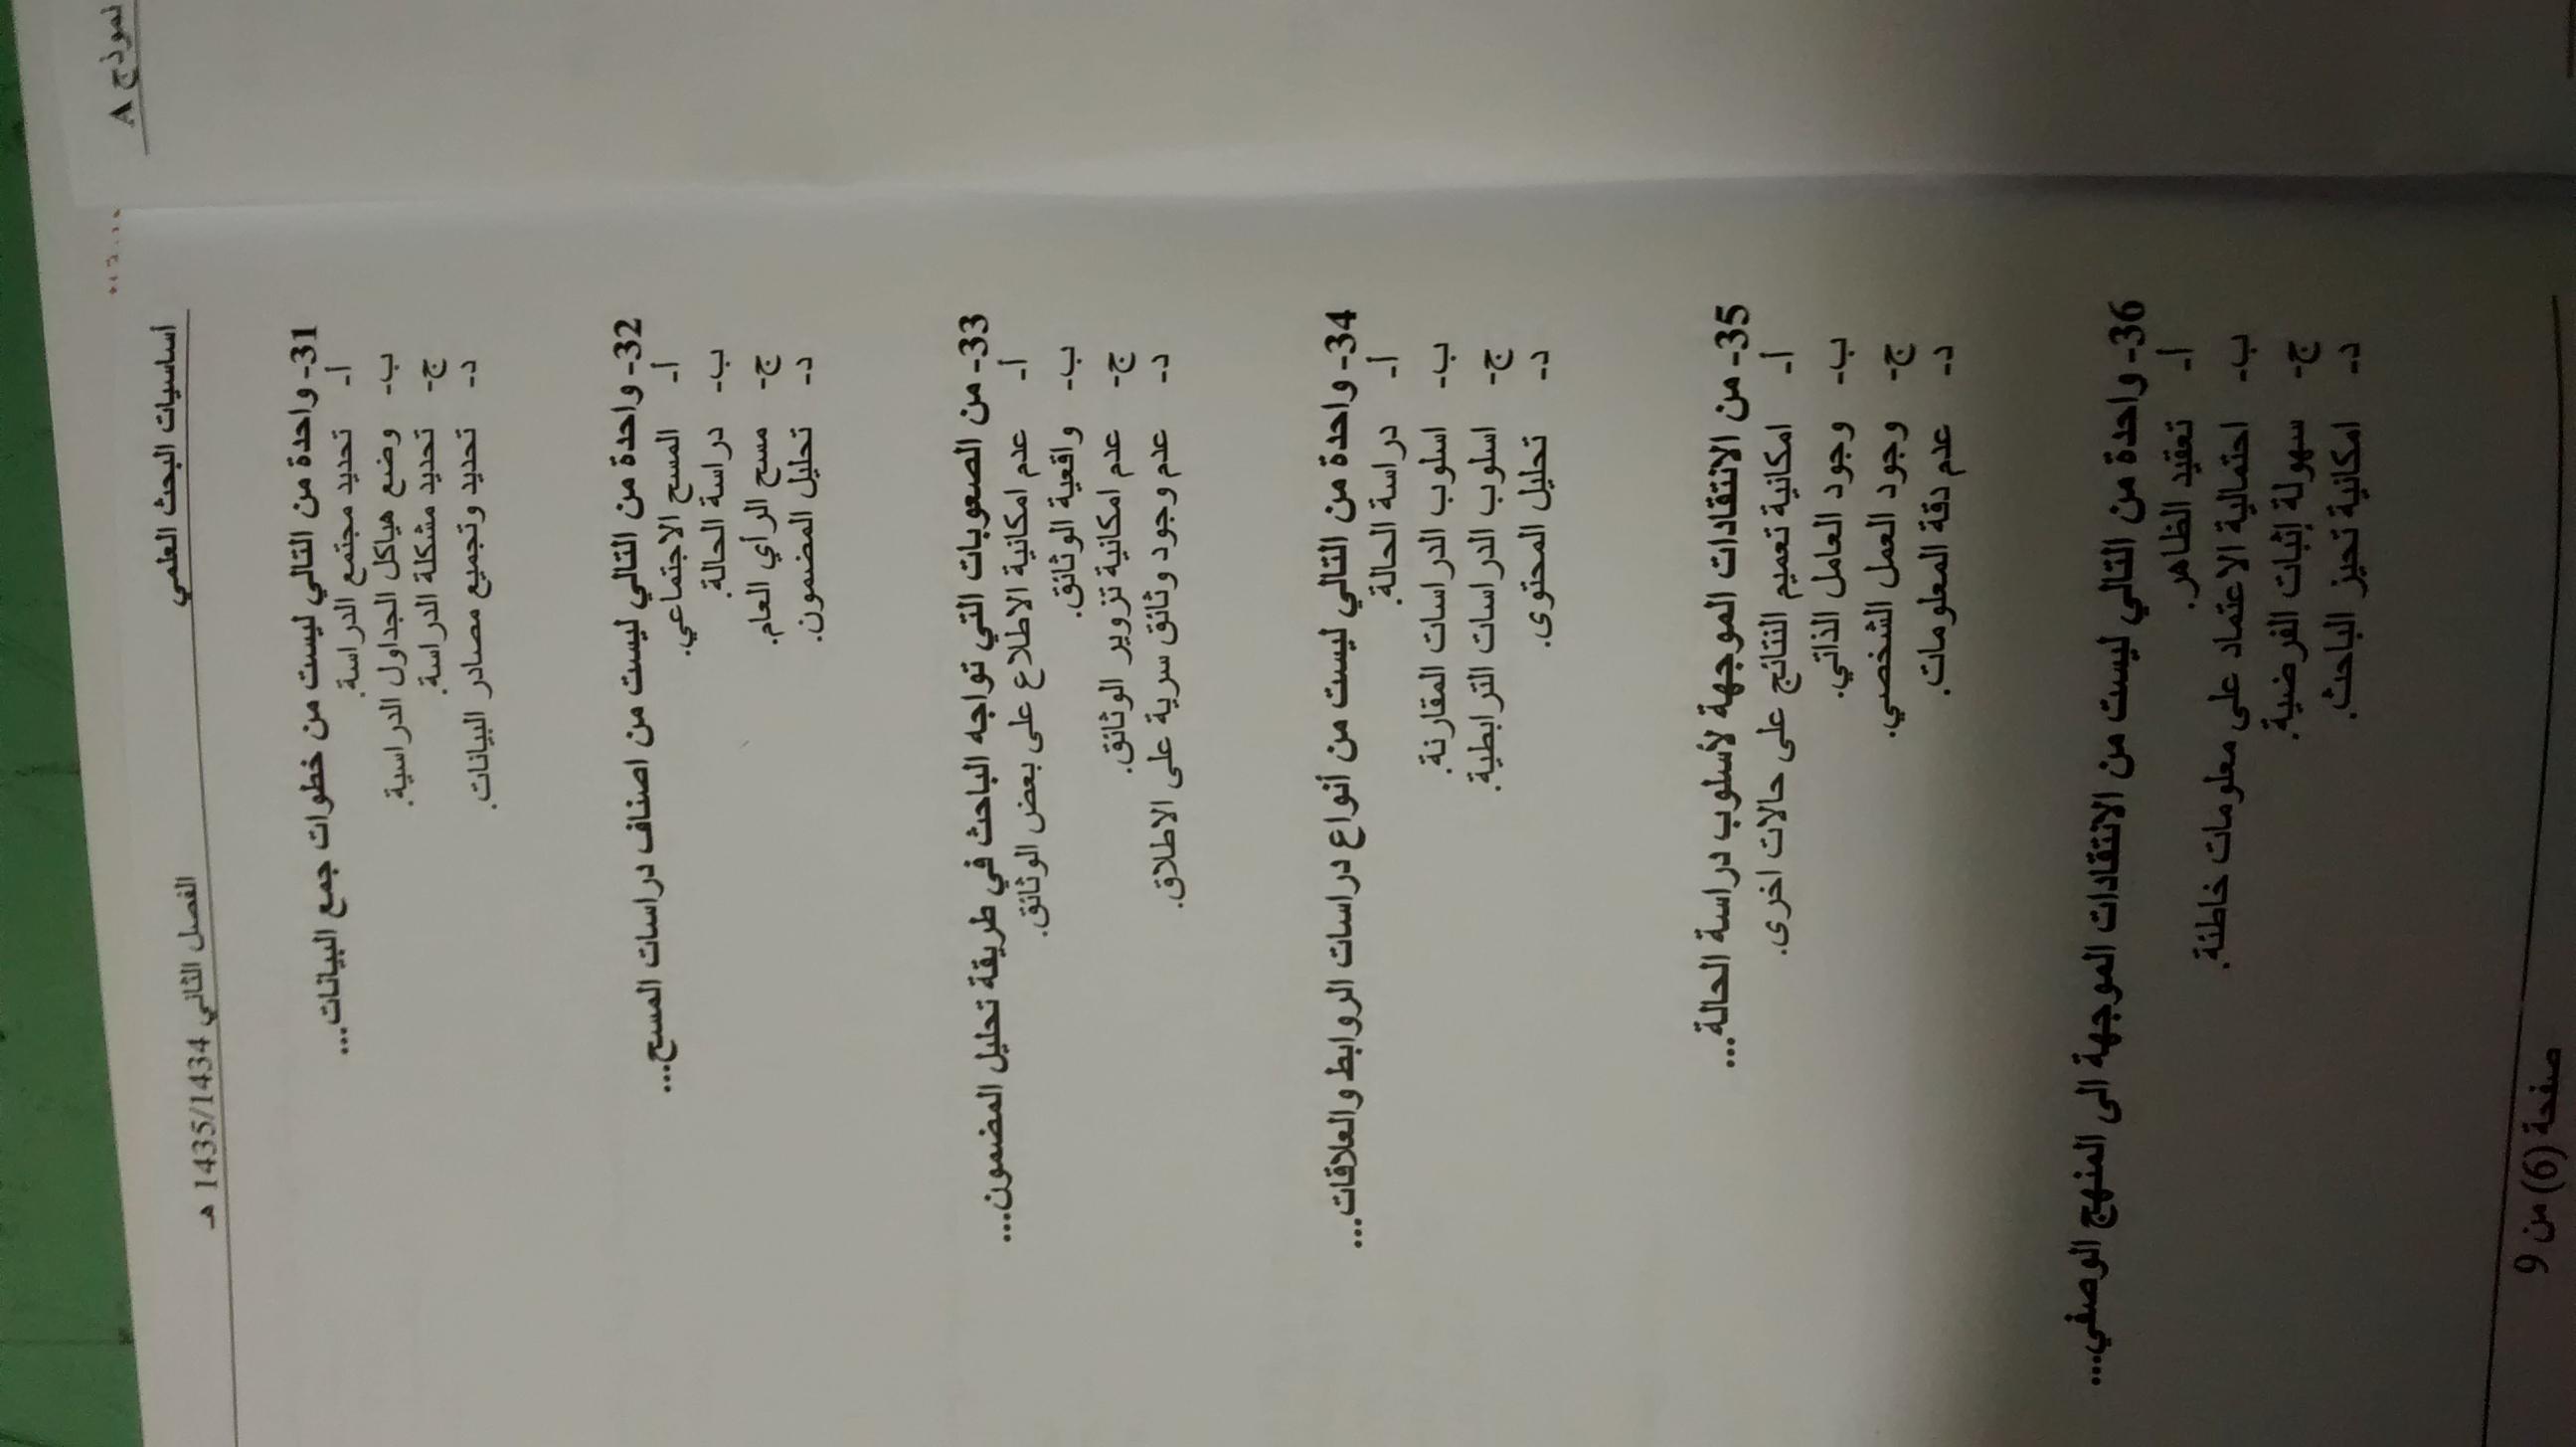 نموذج A
أساسيات البحث العلمي
الفصل الثاني 1435/1434 هـ
31- واحدة من التالي ليست من خطوات جمع البيانات...
أ- تحديد مجتمع الدراسة.
ب- وضع هياكل الجداول الدراسية.
ج- تحديد مشكلة الدراسة.
د- تحديد وتجميع مصادر البيانات.
32- واحدة من التالي ليست من اصناف دراسات المسح...
أ- المسح الاجتماعي.
ب- دراسة الحالة.
ج- مسح الرأي العام.
د- تحليل المضمون.
33- من الصعوبات التي تواجه الباحث في طريقة تحليل المضمون...
أ- عدم امكانية الاطلاع على بعض الوثائق.
ب- واقعية الوثائق.
ج- عدم امكانية تزوير الوثائق.
د- عدم وجود وثائق سرية على الاطلاق.
34- واحدة من التالي ليست من أنواع دراسات الروابط والعلاقات...
أ- دراسة الحالة.
ب- اسلوب الدراسات المقارنة.
ج- اسلوب الدراسات الترابطية.
د- تحليل المحتوى.
35- من الانتقادات الموجهة لأسلوب دراسة الحالة...
أ- امكانية تعميم النتائج على حالات اخرى.
ب- وجود العامل الذاتي.
ج- وجود العمل الشخصي.
د- عدم دقة المعلومات.
36- واحدة من التالي ليست من الانتقادات الموجهة الى المنهج الوصفي...
أ- تعقيد الظاهر.
ب- احتمالية الاعتماد على معلومات خاطئة.
ج- سهولة إثبات الفرضية.
د- امكانية تحيز الباحث.
صفحة (6) من 9